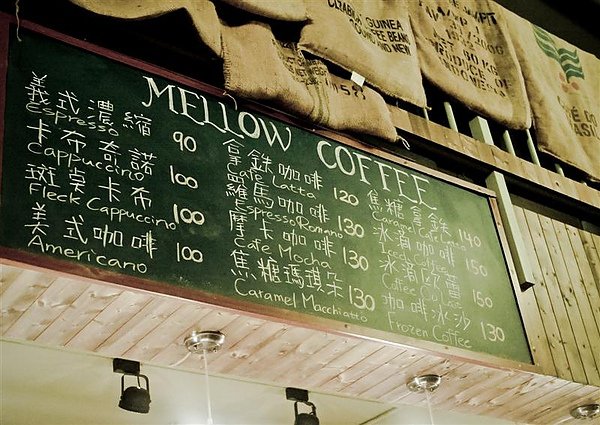 MELLOW COFFEE
義式濃縮 90
Espresso
卡布奇諾 100
Cappuccino
斑桌卡布 100
Fleck Cappuccino
美式咖啡 100
Americano
拿鉄咖啡 120
Cafe Latta
羅馬咖啡 130
Espresso Romano
摩卡咖啡 130
Cafe Mocha
焦糖瑪琪朵 130
Caramel Macchiatto
焦糖拿鉄 140
Caramel Cafe
冰滴咖啡 150
Coffee
冰滴 150
咖啡冰沙 130
Frozen Coffee
GUINEA
COFFEE BEAN
PRODUCE OF
INDONESIA